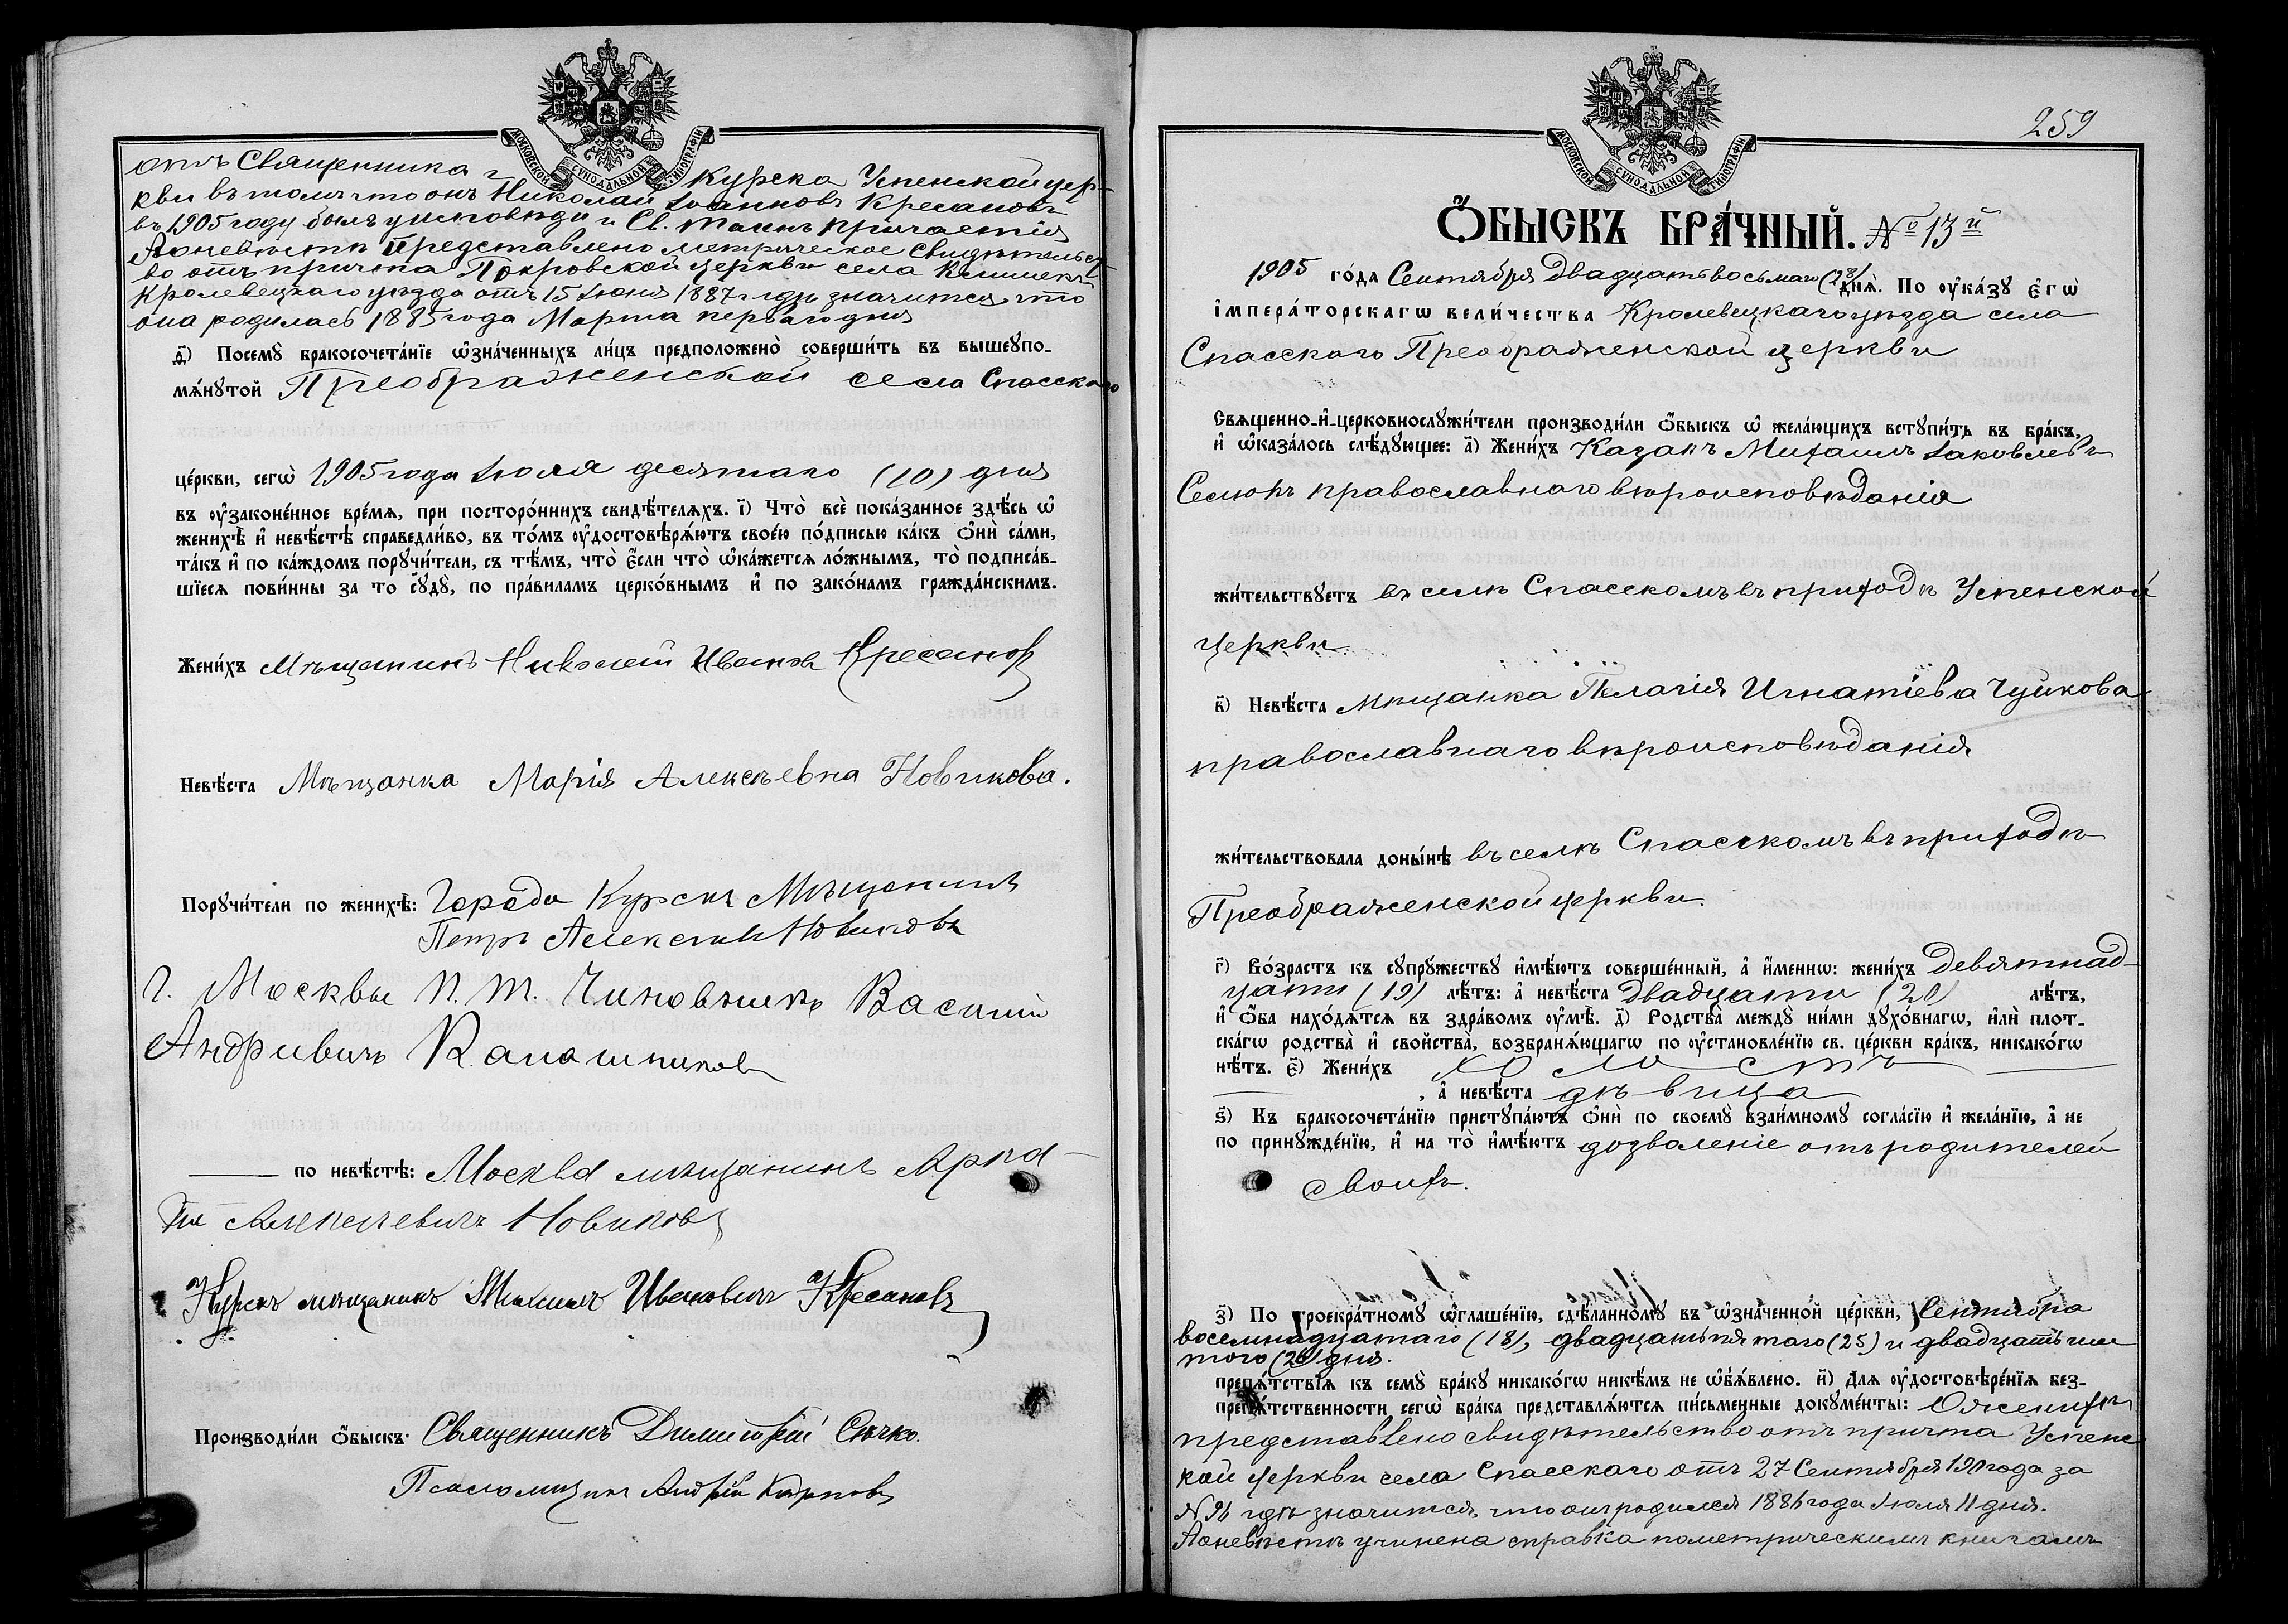 МОСКОВСКОЙ СУНОДАЛЬНОЙ ТИПОГРАФІИ
отъ Священника г. Курска Успенской цер-
кви въ томъ что онъ Николай Іоанновъ Кресановъ
въ 1905 году былъ у исповѣди и Св. Таинъ причастія
А о невѣстѣ представлено метрическое свидѣтельст
во отъ причта Покровской церкви села
Кролевецкаго уѣзда отъ 15 Іюня 1887 г. гдѣ значится что
она родилась 1885 года Марта перваго дня
ѳ҃) Посемꙋ̀ бракосочета́нїе ѡ҆зна́ченныхъ ли́цъ предположено̀ соверши́ть въ вышеꙋпо-
мѧ́нꙋтой Преображенской села Спасскаго
це́ркви, сегѡ̀ 1905 года Іюля десятаго (10) дня
въ ᲂу҆законе́нное вре́мѧ, при посторо́ннихъ свидѣ́телѧхъ. і҃) Что̀ всѐ пока́занное здѣ́сь ѡ҆
женихѣ̀ и҆ невѣ́стѣ справедли́во, въ то́мъ ᲂу҆достовѣрѧ́ютъ свое́ю по́дписью ка́къ ѻ҆нѝ са́ми,
та́къ и҆ по ка́ждомъ порꙋчи́тели, съ тѣ́мъ, что̀ є҆́сли что̀ ѡ҆ка́жетсѧ ло́жнымъ, то̀ подписа́в-
шїесѧ пови́нны за то сꙋдꙋ̀, по пра́виламъ церко́внымъ и҆ по зако́намъ гражда́нскимъ.
Жени́хъ Мѣщанинъ Николай Иванов Кресановъ
Невѣ́ста Мѣщанка Марія Алексѣевна Новикова.
Порꙋчи́тели по женихѣ̀: Города Курскъ Мѣщанинъ
Петръ Алексѣивъ Новиковъ
г. Москвы П. Т. Чиновникъ Василий
Андривичъ Калашников
по невѣ́стѣ: Москва мѣщанинъ Арка-
Алексѣевичъ Новиковъ
Курскъ мѣщанинъ Михаилъ Ивановичъ Кресановъ
Производи́ли ѻ҆́быскъ: Священникъ Димитрій Сѣчко.
Псаломщикъ Андрей Карповъ
259
МОСКОВСКОЙ СУНОДАЛЬНОЙ ТИПОГРАФІИ
Ѻ҆́БЫСКЪ БРА́ЧНЫЙ. №13й
1905 го́да Сентября двадцать восьмаго (28) днѧ̀. По ᲂу҆ка́зꙋ є҆гѡ̀
і҆мпера́торскагѡ вели́чества Кролевецкаго уѣзда села
Спасскаго Преображенской церкви
Свѧщенно-и҆-церковнослꙋжи́тели производи́ли ѻ҆́быскъ ѡ҆ жела́ющихъ встꙋпи́ть въ бра́къ,
и҆ ѡ҆каза́лось слѣ́дꙋющее: а҃) Жени́хъ Казакъ Михаилъ Іаковлевъ
Сеггокъ православнаго вѣроисповѣданія
жи́тельствꙋетъ въ селѣ Спасскомъ въ приходѣ Успенской
церкви
в҃) Невѣ́ста мѣщанка Пелагія Игнатіева Чуйкова
православнаго вѣроисповѣданія
жи́тельствовала доны́нѣ въ селѣ Спасскомъ въ приходѣ
Преображенской церкви.
г҃) Во́зрастъ къ сꙋпрꙋжествꙋ и҆мѣ́ютъ соверше́нный, а҆ и҆́меннѡ: жени́хъ девятнад-
цати (19) лѣ́тъ: а҆ невѣ́ста двадцати (20) лѣ́тъ,
и҆ ѻ҆́ба нахо́дѧтсѧ въ здра́вомъ ᲂу҆мѣ̀. д҃) Родства̀ междꙋ̀ ни́ми дꙋхо́внагѡ, и҆лѝ плот-
ска́гѡ родства̀ и҆ свойства̀, возбранѧ́ющагѡ по ᲂу҆становле́нїю св. це́ркви бра́къ, никако́гѡ
нѣ́тъ. є҃) Жени́хъ холостъ
, а҆ невѣ́ста дѣвица
ѕ҃) Къ бракосочета́нїю пристꙋпа́ютъ ѻ҆нѝ по своемꙋ̀ взаи́мномꙋ согла́сїю и҆ жела́нїю, а҆ не
по принꙋжде́нїю, и҆ на то̀ и҆мѣ́ютъ дозволеніе отъ родителей
своихъ.
з҃) По троекра́тномꙋ ѡ҆глаше́нїю, сдѣ́ланномꙋ въ ѡ҆зна́ченной це́ркви, Сентября
восемнадцатаго (18), двадцать пятаго (25) и двадцать шес
того (26) дня.
препѧ́тствїѧ къ семꙋ̀ бра́кꙋ никако́гѡ никѣ́мъ не ѡ҆б̾ѧ́влено. и҃) Длѧ ᲂу҆достовѣре́нїѧ без-
препѧ́тственности сегѡ̀ бра́ка представлѧ́ютсѧ пи́сьменные докꙋме́нты: О женихѣ
представлено свидѣтельство отъ причта Успенс
кой церкви села Спасскаго отъ 27 Сентября года за
№ 96 гдѣ значится, что онъ родился 1886 года Іюля 11 дня.
А о невѣстѣ учинена справка по метрическимъ книгамъ